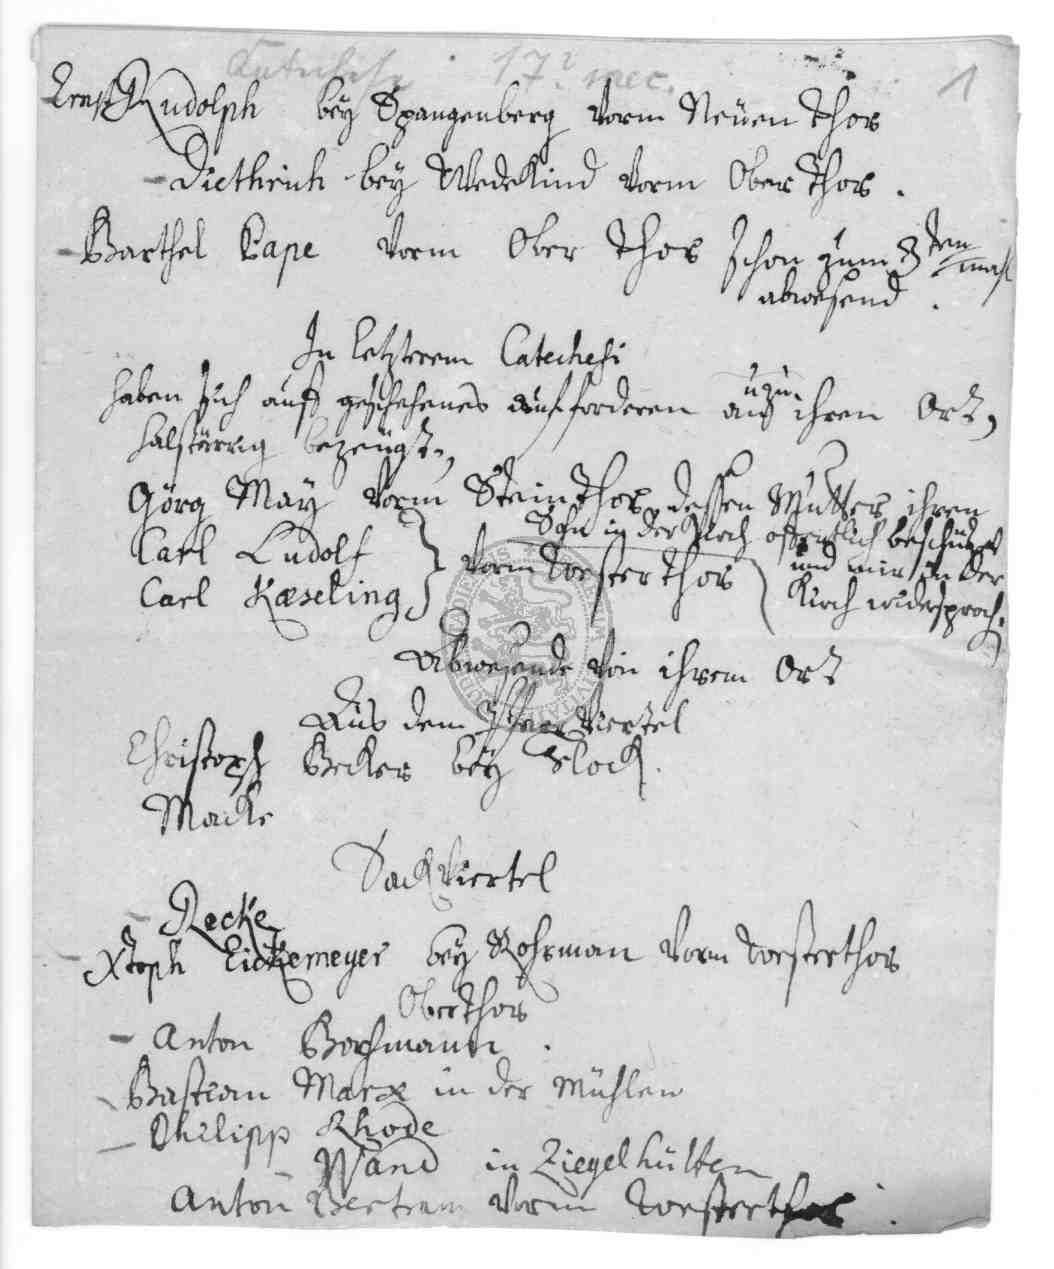 17. 1
Ernst Rudolph bey Spangenberg vorm Neüen Thor
Diethrich bey Wedekind vorm Ober Thor.
Barthel Pape vorm Ober Thor schon zum 3 ten mahl
abwesend.
In letzterem Catechesi
haben sich auff geschehenes aufforderen an ihren Ort,
halstarrig bezeugt.,
Görg May vorm Stein Thor, dessen Mutter ihren
Sohn in der Kirch offentlich beschützet
Carl Ludolf
vorm Woester Thor
und mir in der
Carl Kæseling
Kirch widersproch.
Abwesende von ihrem Ort
Aus dem Viertel
Christoph Becker bey Flock.
Macke
Sack Viertel
Recke
Xstoph Eickemeyer bey Rohrman vorm Woesterthor
Oberthor
Anton Borchmann.
Bastian Marx in der Mühlen
Philipp Rhode
Wand in Ziegelhütten
Anton Bertram vorm Woesterthor.